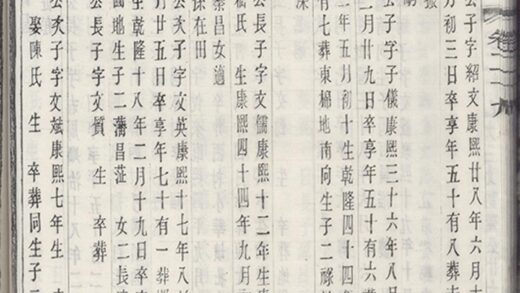 卷二
九
公子字紹文康熙廿八年六月十
月初三日卒享年五十有八葬
公子字子儀康熙三十六年八月
二月廿九日卒享年五十有六
年五月初十生乾隆四十四年
有七葬東棉地南向生子二祿
公長子字文儒康熙十二年生
氏生康熙四十四年九月
蕃昌女適
保在田
公次子字文英康熙十七年八
月廿五日卒享年七十有一葬
生乾隆十八年二月十九日卒
地生子二藩昌 女二長
公長子字文質 生 卒葬
公次子字文斌康熙七年生
娶陳氏 生 卒葬同生子二